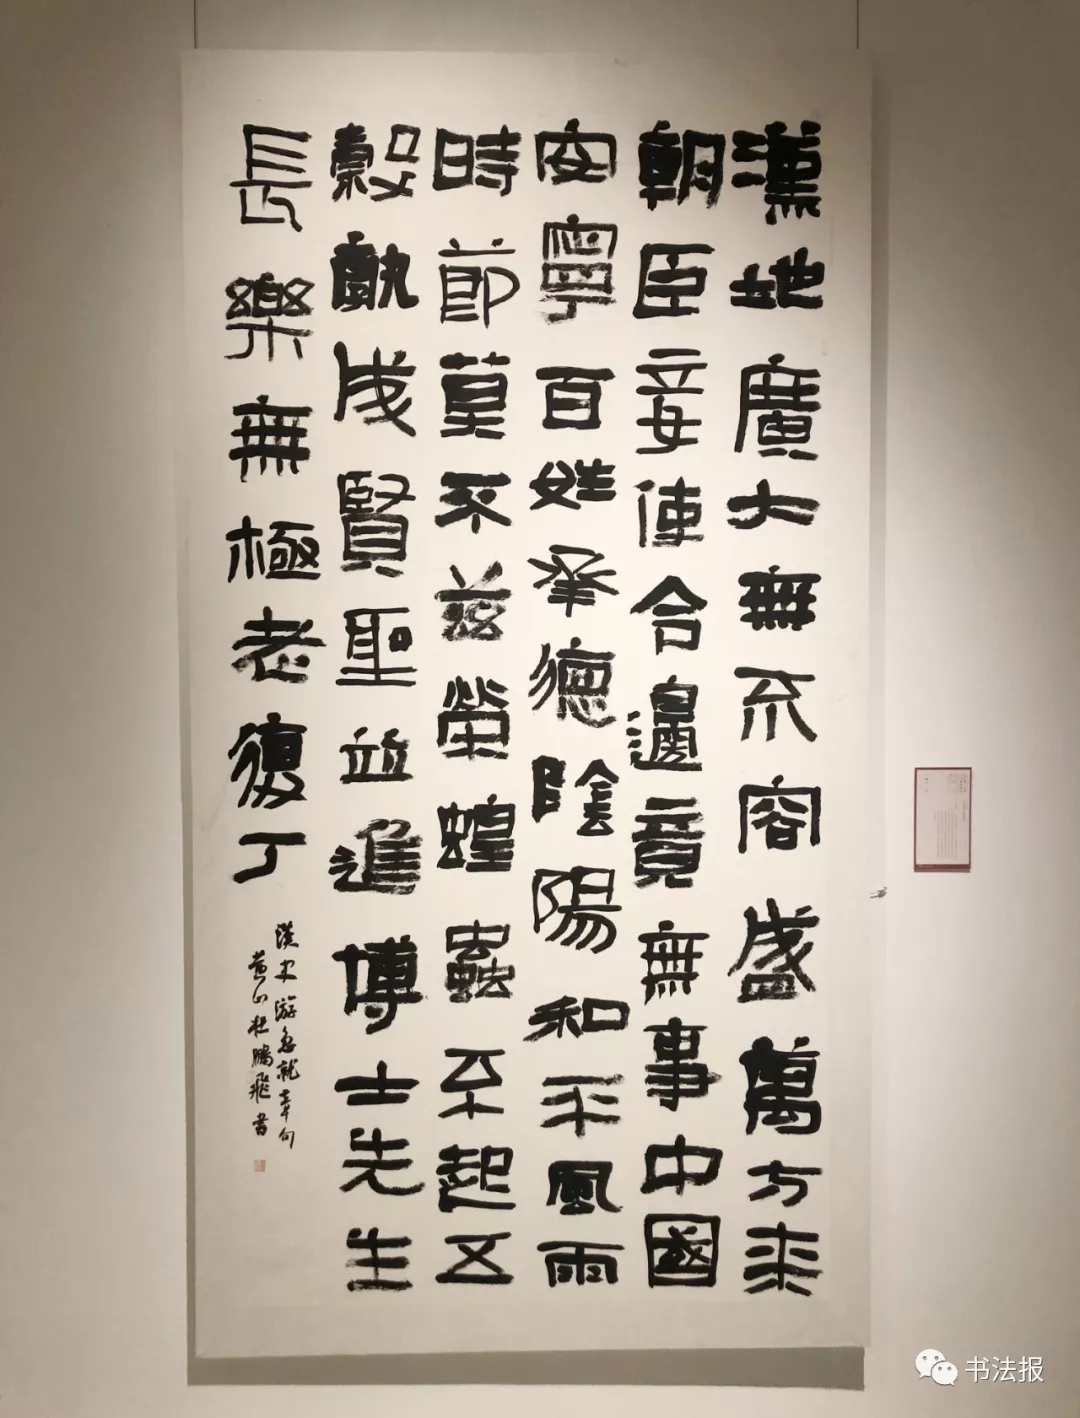 漢地廣大無不容盛萬方來
朝臣妾使令邊竟無事中國
安寧百姓承德陰陽和平風雨
時節莫不兹榮蝗蟲不起五
穀孰成賢聖並進博士先生
長樂無極老復丁
漢史游急就章句
黄山杜鵬飛書
书法报